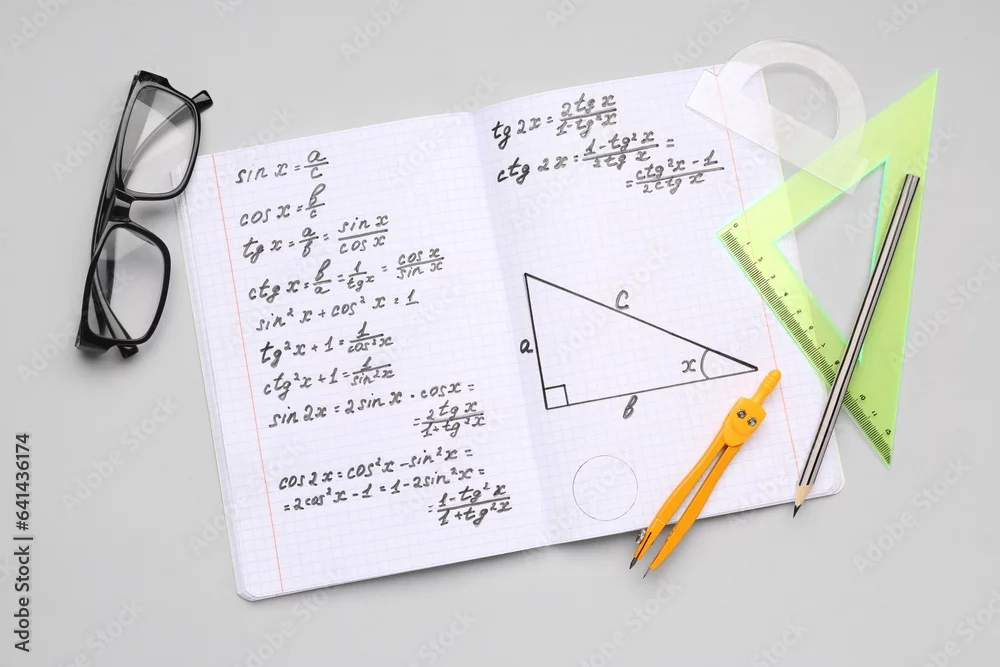 sin x = a/c
cos x = в/c
tg x = a/в = sin x/cos x
ctg x = в/a = 1/tg x = cos x/sin x
sin² x + cos² x = 1
tg² x + 1 = 1/cos² x
ctg² x + 1 = 1/sin² x
sin 2x = 2 sin x · cos x =
= 2 tg x/1 + tg² x
cos 2x = cos² x - sin² x =
= 2 cos² x - 1 = 1 - 2 sin² x =
= 1 - tg² x/1 + tg² x
tg 2x = 2 tg x/1 - tg² x
ctg 2x = 1 - tg² x/2 tg x =
= ctg² x - 1/2 ctg x
c
a
x
в
0 1 2 3 4 5 6 7 8 9 10 11 12
Adobe Stock | #641436174